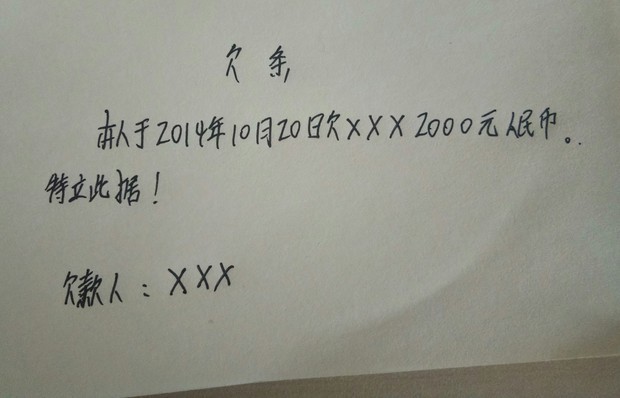 欠条
本人于2014年10月20日欠XXX 2000元人民币。
特立此据！
欠款人：XXX